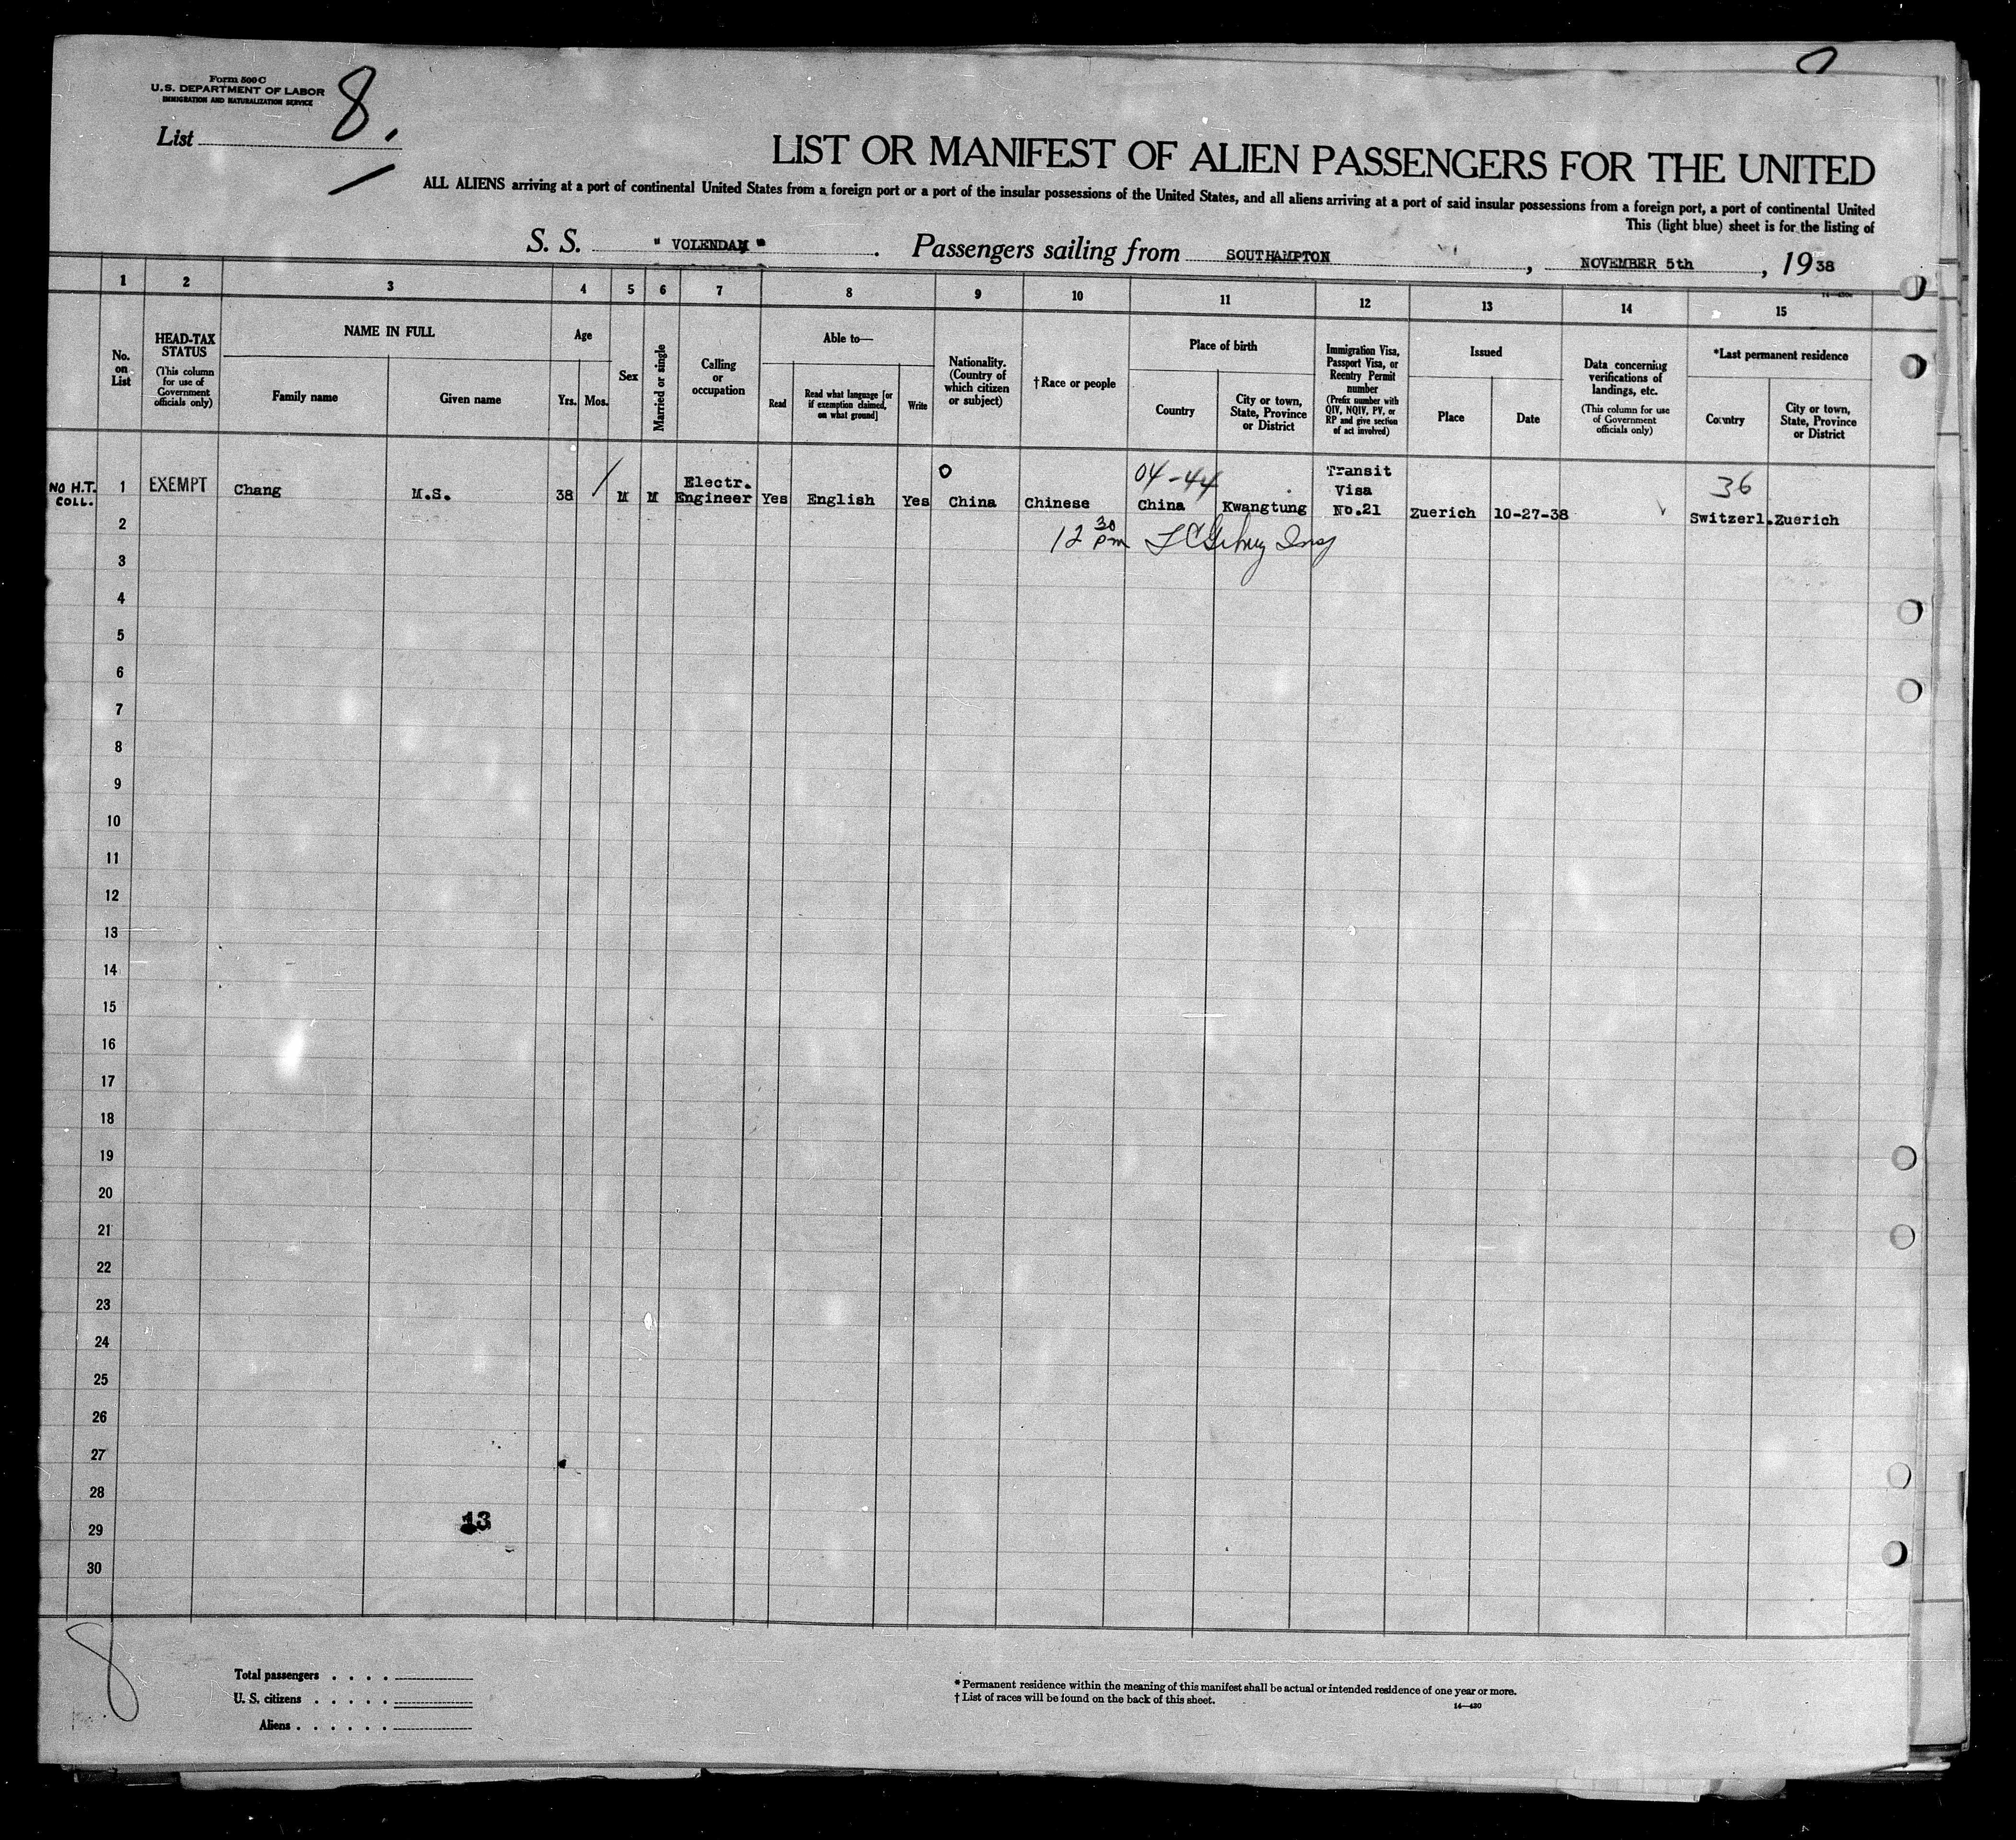 Form 500 C
U.S. DEPARTMENT OF LABOR
IMMIGRATION AND NATURALIZATION SERVICE
List 8.
LIST OR MANIFEST OF ALIEN PASSENGERS FOR THE UNITED
ALL ALIENS arriving at a port of continental United States from a foreign port or a port of the insular possessions of the United States, and all aliens arriving at a port of said insular possessions from a foreign port, a port of continental United
This (light blue) sheet is for the listing of
S. S. "VOLENDAM". Passengers sailing from SOUTHAMPTON, NOVEMBER 5th, 1938
1 2 3 4 5 6 7 8 9 10 11 12 13 14 15
No. on List
HEAD-TAX STATUS
(This column for use of Government officials only)
NAME IN FULL
Family name
Given name
Age
Yrs. Mos.
Sex
Married or single
Calling or occupation
Able to—
Read
Read what language [or if exemption claimed, on what ground]
Write
Nationality. (Country of which citizen or subject)
†Race or people
Place of birth
Country
City or town, State, Province or District
Immigration Visa, Passport Visa, or Reentry Permit number
(Prefix number with QIV, NQIV, PV, or RP and give section of act involved)
Issued
Place
Date
Data concerning verifications of landings, etc.
(This column for use of Government officials only)
*Last permanent residence
Country
City or town, State, Province or District
04-44
36
NO H.T. COLL. 1 EXEMPT Chang M.S. 38 M M Electr. Engineer Yes English Yes China Chinese China Kwangtung Transit Visa No.21 Zuerich 10-27-38 Switzerl. Zuerich
12 30 pm
2
3
4
5
6
7
8
9
10
11
12
13
14
15
16
17
18
19
20
21
22
23
24
25
26
27
28
13
29
30
8
Total passengers . . . .
U. S. citizens . . . . .
Aliens . . . . . .
* Permanent residence within the meaning of this manifest shall be actual or intended residence of one year or more.
† List of races will be found on the back of this sheet.
14—430